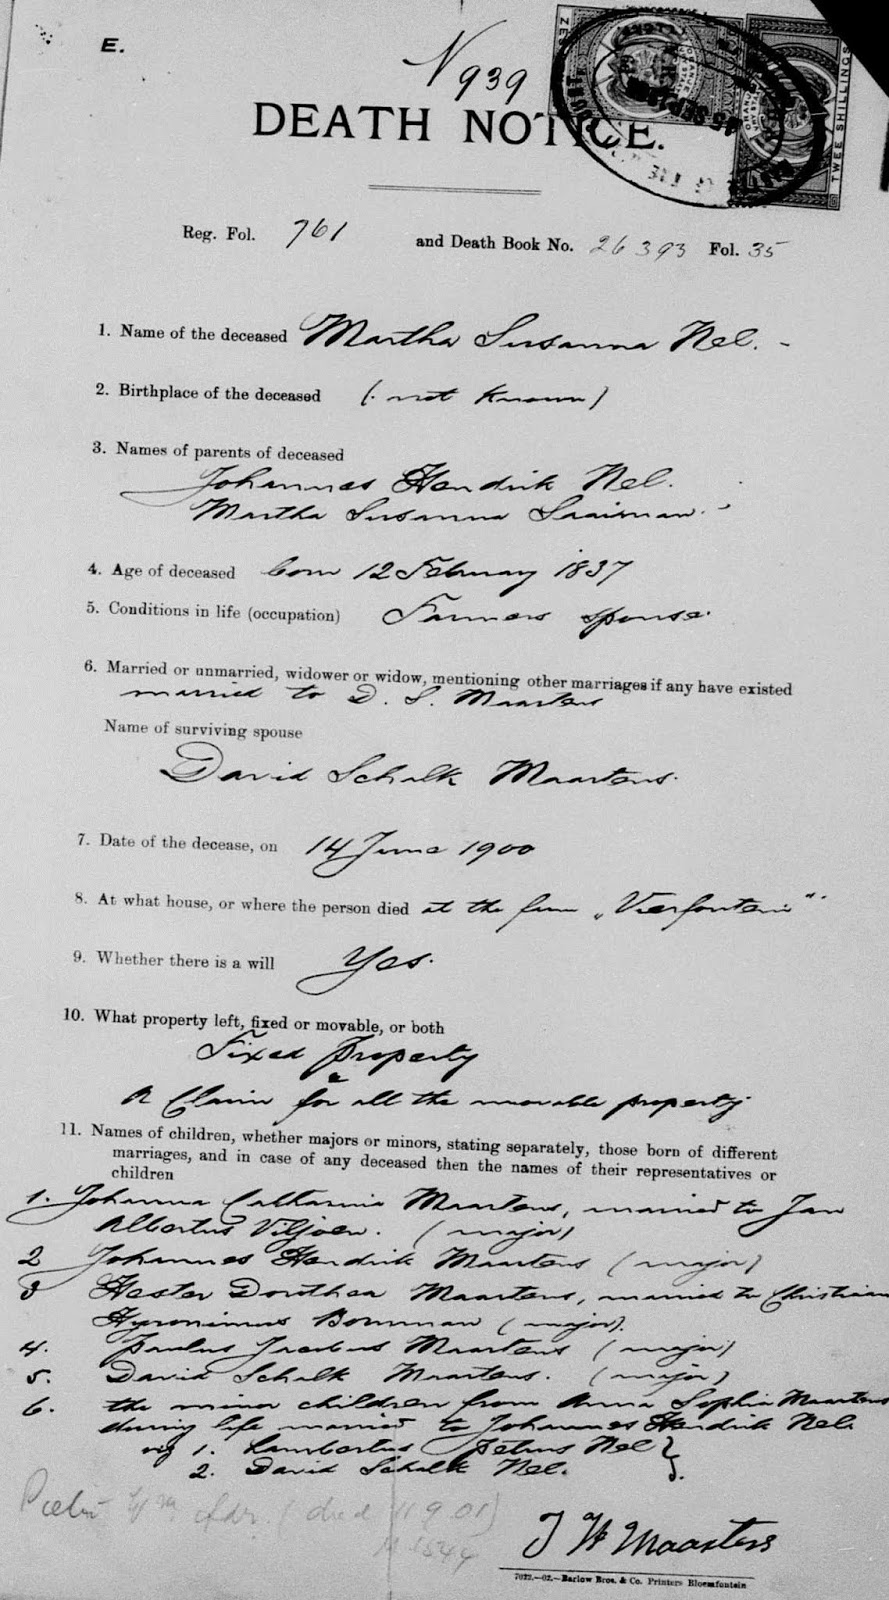 E.
N 939
DEATH NOTICE.
TWEE SHILLINGS
Reg. Fol. 761 and Death Book No. 26393 Fol. 35
1. Name of the deceased Martha Susanna Nel. -
2. Birthplace of the deceased (not known)
3. Names of parents of deceased
Johannes Hendrik Nel.
Martha Susanna Snaiman.
4. Age of deceased born 12 February 1837
5. Conditions in life (occupation) Farmers spouse.
6. Married or unmarried, widower or widow, mentioning other marriages if any have existed
married to D. S. Maartens
Name of surviving spouse
David Schalk Maartens.
7. Date of the decease, on 14 June 1900
8. At what house, or where the person died at the farm „Vierfontein"
9. Whether there is a will Yes.
10. What property left, fixed or movable, or both
Fixed property
&
A Claim for all the movable property
11. Names of children, whether majors or minors, stating separately, those born of different
marriages, and in case of any deceased then the names of their representatives or
children
1. Johanna Catharina Maartens, married to Jan
Albertus Viljoen. (major)
2 Johannes Hendrik Maartens (major)
3 Hester Dorothea Maartens, married to Christiaan
Hyronimus Bouwman (major).
4. Paulus Jacobus Maartens (major)
5. David Schalk Maartens. (major)
6. the minor children from Anna Sophia Maartens
during life married to Johannes Hendrik Nel
viz 1. Lambertus Petrus Nel }
2. David Schalk Nel. }.
(died 11 9 01)
J H Maartens
7022.—02.—Barlow Bros. & Co. Printers Bloemfontein